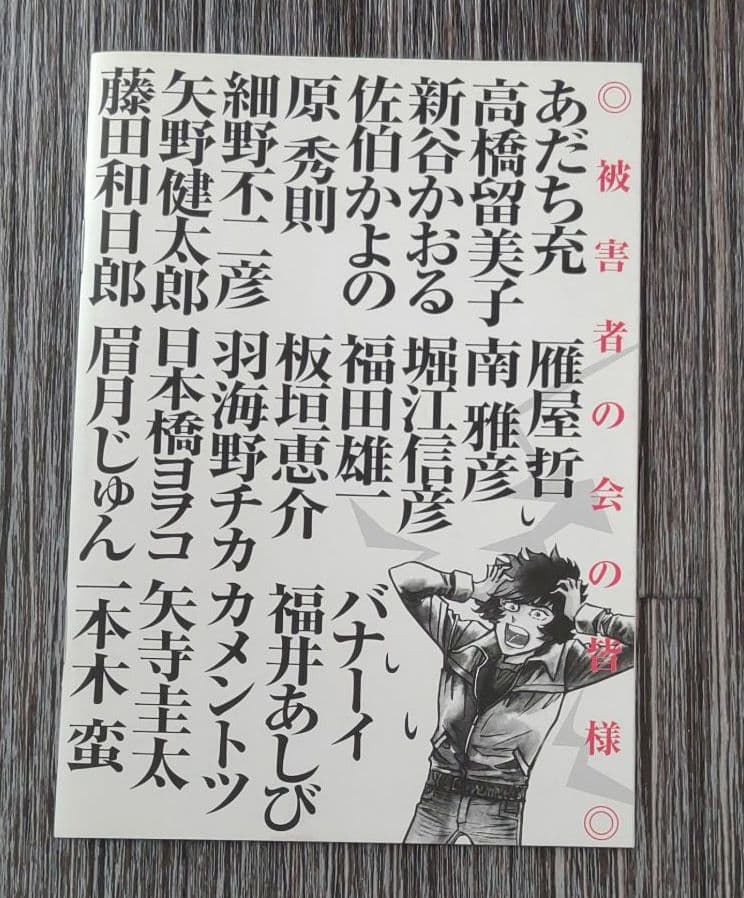 ◎被害者の会の皆様◎
あだち充
高橋留美子
新谷かおる
佐伯かよの
原 秀則
細野不二彦
矢野健太郎
藤田和日郎
雁屋哲
南 雅彦
堀江信彦
福田雄一
板垣恵介
羽海野チカ
日本橋ヨヲコ
眉月じゅん
バナーイ
福井あしび
カメントツ
矢寺圭太
一本木 蛮